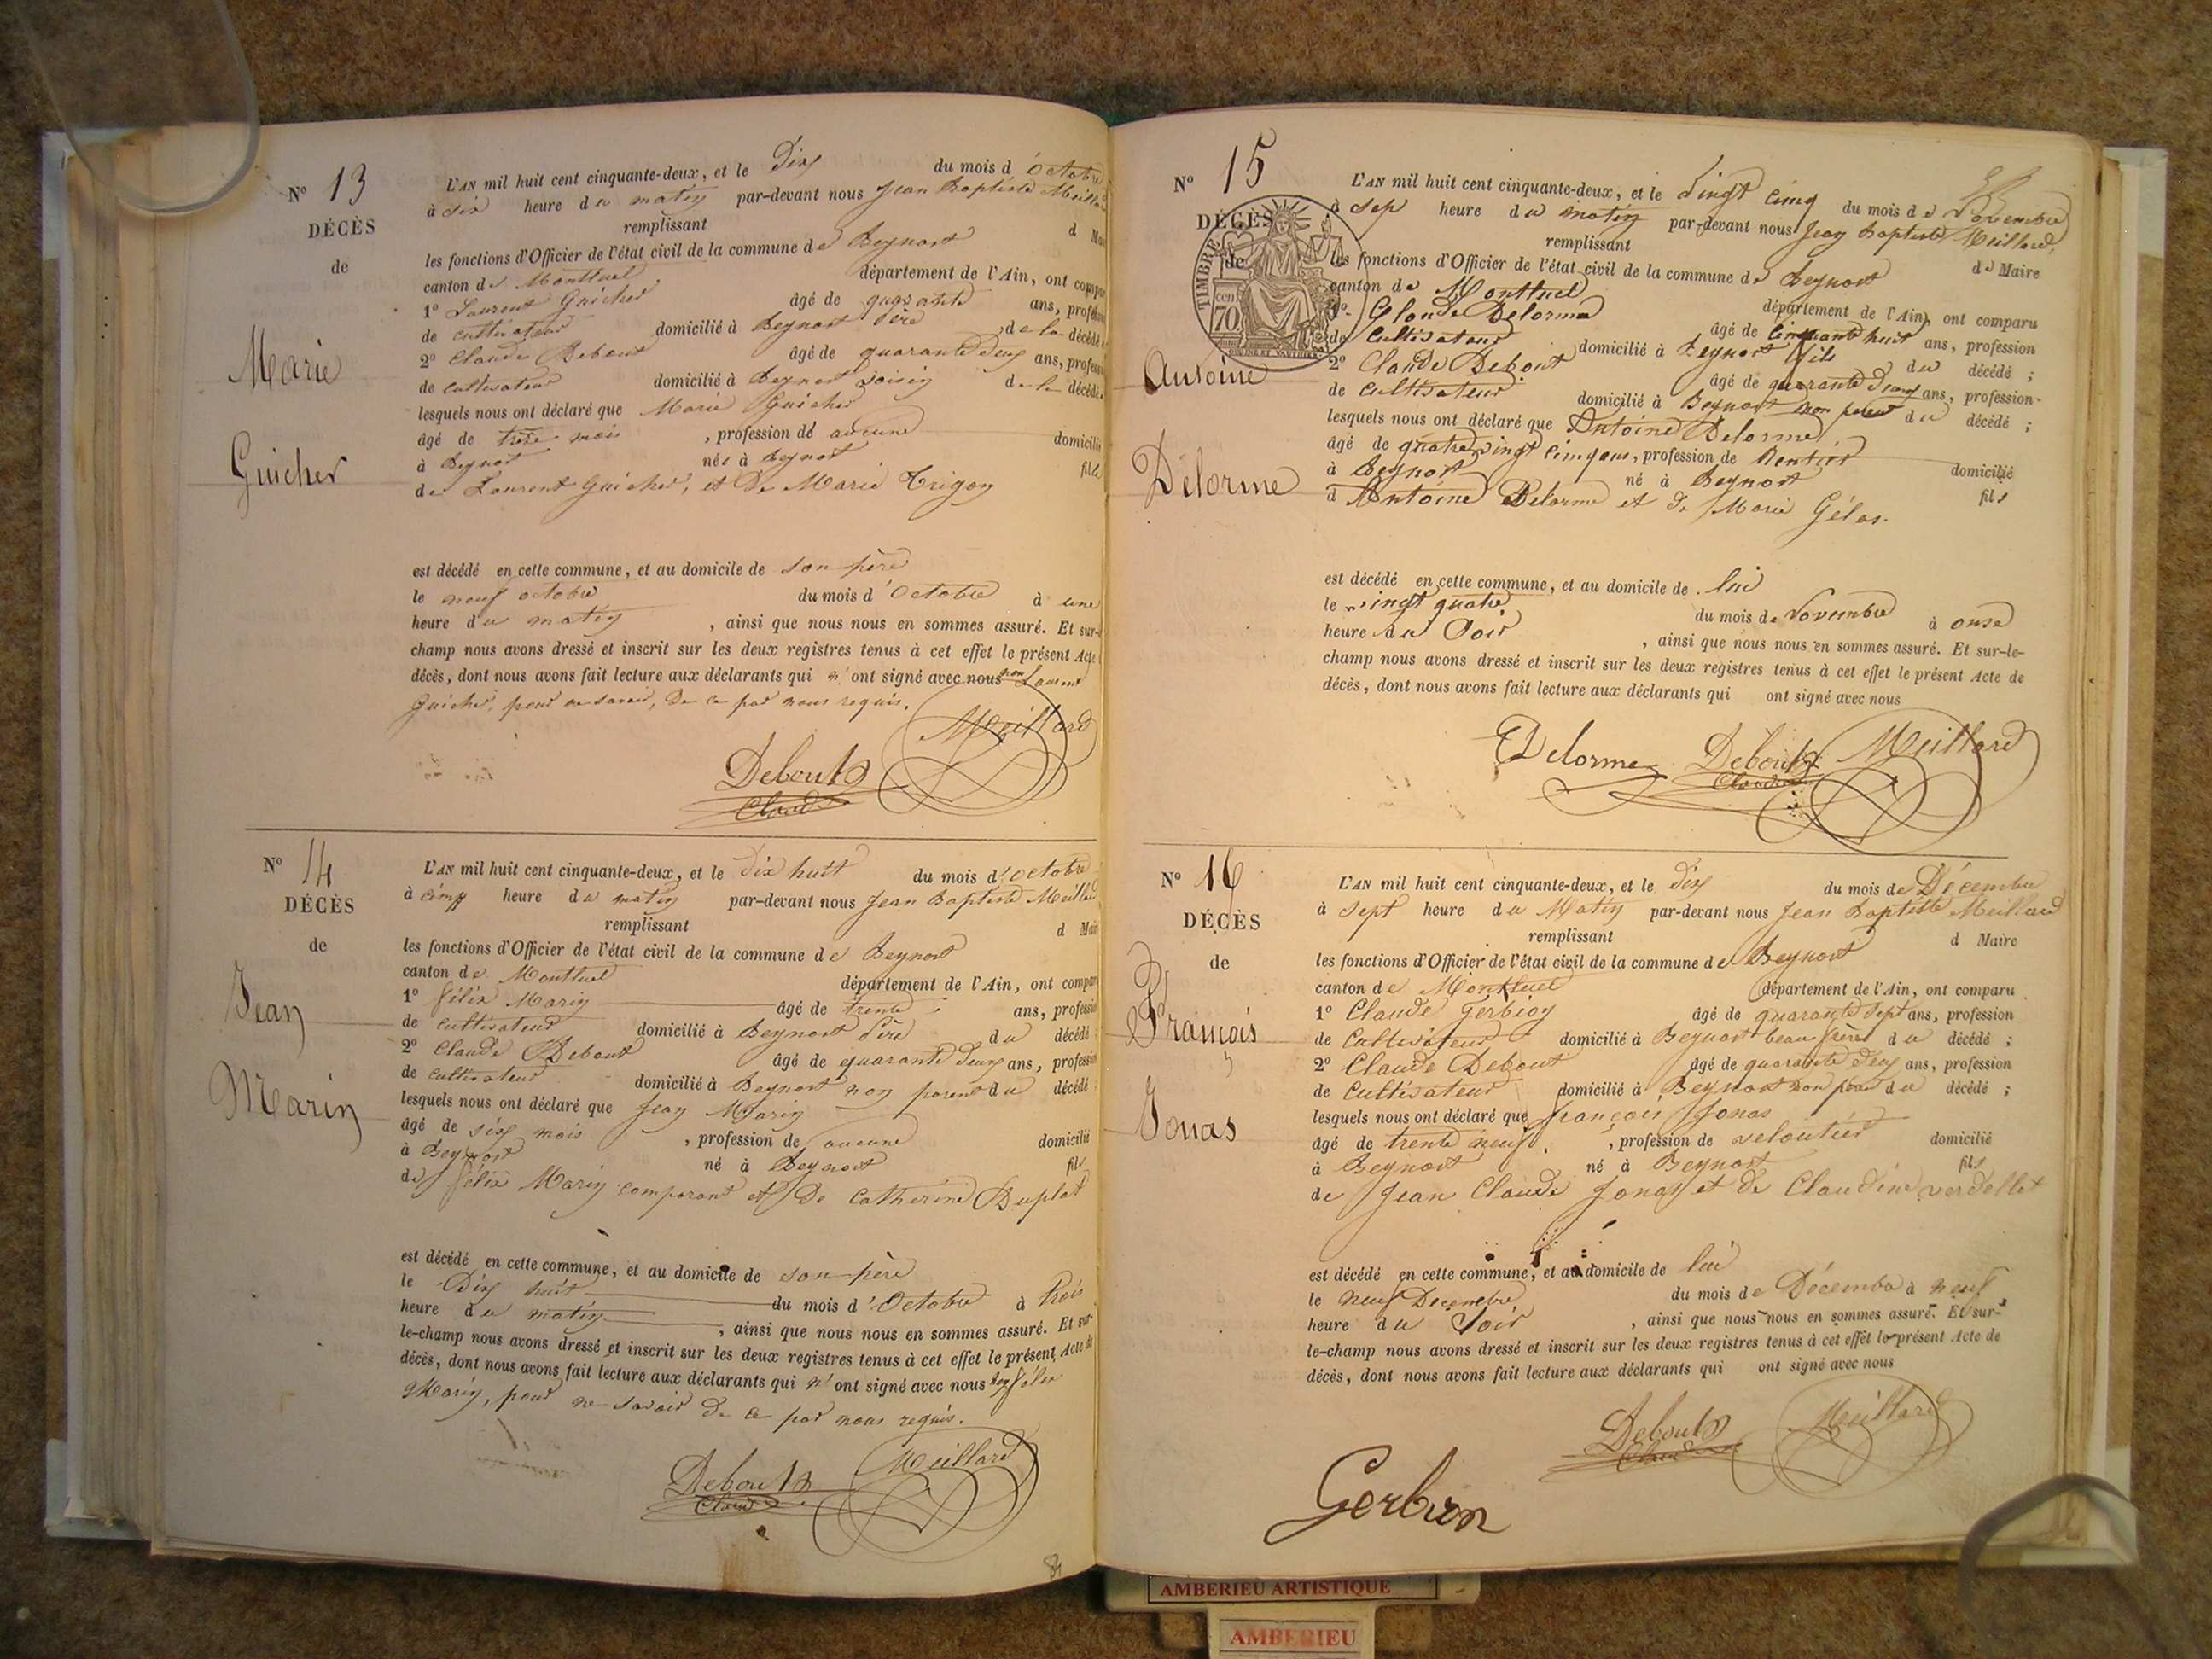 N° 13
DÉCÈS
de
Marie
Guicher
L'AN mil huit cent cinquante-deux, et le Dix du mois d'octobre
à six heure du matin par-devant nous Jean Baptiste Meillard
remplissant
les fonctions d'Officier de l'état civil de la commune de Beynost
canton de Montluel département de l'Ain, ont
1° Laurent Guicher âgé de quarante ans,
de cultivateur domicilié à Beynost Père de la décédée
2° Claude Debout âgé de quarante deux ans,
de cultivateur domicilié à Beynost voisin de la décédée
lesquels nous ont déclaré que Marie Guicher
âgé de treize mois, profession de aucune domicilié
à Beynost née à Beynost fille
de Laurent Guicher, et de Marie Trigon
est décédé en cette commune, et au domicile de son père
le neuf octobre du mois d'Octobre à une
heure du matin, ainsi que nous nous en sommes assuré. Et sur-
champ nous avons dressé et inscrit sur les deux registres tenus à cet effet le présent Acte
décès, dont nous avons fait lecture aux déclarants qui n'ont signé avec nous non Laurent
Guicher, pour ne savoir, de ce par nous requis.
Meillard
Debout
Claude
N° 14
DÉCÈS
de
Jean
Marin
L'AN mil huit cent cinquante-deux, et le Dix huit du mois d'Octobre
à cinq heure du matin par-devant nous Jean Baptiste Meillard
remplissant
les fonctions d'Officier de l'état civil de la commune de Beynost
canton de Montluel département de l'Ain, ont
1° félix Marin âgé de trente ans,
de cultivateur domicilié à Beynost Père du décédé
2° Claude Debout âgé de quarante deux ans,
de cultivateur domicilié à Beynost non parent du décédé
lesquels nous ont déclaré que Jean Marin
âgé de six mois, profession de aucune domicilié
à Beynost né à Beynost fils
de félix Marin comparant et De Catherine Duplat
est décédé en cette commune, et au domicile de son père
le Dix huit du mois d'Octobre à trois
heure du matin, ainsi que nous nous en sommes assuré. Et sur-
le-champ nous avons dressé et inscrit sur les deux registres tenus à cet effet le présent Acte de
décès, dont nous avons fait lecture aux déclarants qui n'ont signé avec nous félix
Marin, pour ne savoir de ce par nous requis.
Meillard
Debout
Claude
N° 15
DÉCÈS
de
TIMBRE
70 cen
Antoine
Delorme
L'AN mil huit cent cinquante-deux, et le vingt cinq du mois de Novembre
à sep heure du matin par-devant nous Jean Baptiste Meillard,
remplissant de Maire
les fonctions d'Officier de l'état civil de la commune de Beynost
canton de Montluel département de l'Ain, ont comparu
1° Claude Delorme âgé de cinquante huit ans, profession
de Cultivateur domicilié à Beynost fils du décédé ;
2° Claude Debout âgé de quarante deux ans, profession
de cultivateur domicilié à Beynost non parent du décédé ;
lesquels nous ont déclaré que Antoine Delorme
âgé de quatre vingt cinq ans, profession de Rentier domicilié
à Beynost né à Beynost fils
d'Antoine Delorme et de Marie Gélas.
est décédé en cette commune, et au domicile de lui
le vingt quatre du mois de Novembre à onse
heure du Soir, ainsi que nous nous en sommes assuré. Et sur-le-
champ nous avons dressé et inscrit sur les deux registres tenus à cet effet le présent Acte de
décès, dont nous avons fait lecture aux déclarants qui ont signé avec nous
Delorme Debout Meillard
Claude
N° 16
DÉCÈS
de
François
Jonas
L'AN mil huit cent cinquante-deux, et le Dix du mois de Décembre
à sept heure du Matin par-devant nous Jean Baptiste Meillard
remplissant d Maire
les fonctions d'Officier de l'état civil de la commune de Beynost
canton de Montluel département de l'Ain, ont comparu
1° Claude Gerbion âgé de quarante sept ans, profession
de Cultivateur domicilié à Beynost beau frère du décédé ;
2° Claude Debout âgé de quarante deux ans, profession
de Cultivateur domicilié à Beynost non parent du décédé ;
lesquels nous ont déclaré que françois Jonas
âgé de trente neuf, profession de veloutier domicilié
à Beynost né à Beynost fils
de Jean Claude Jonas et de Claudine verdellet
est décédé en cette commune, et au domicile de lui
le neuf Décembre du mois de Décembre à neuf
heure du Soir, ainsi que nous nous en sommes assuré. Et sur-
le-champ nous avons dressé et inscrit sur les deux registres tenus à cet effet le présent Acte de
décès, dont nous avons fait lecture aux déclarants qui ont signé avec nous
Debout Meillard
Claude
Gerbion
AMBERIEU ARTISTIQUE
AMBERIEU